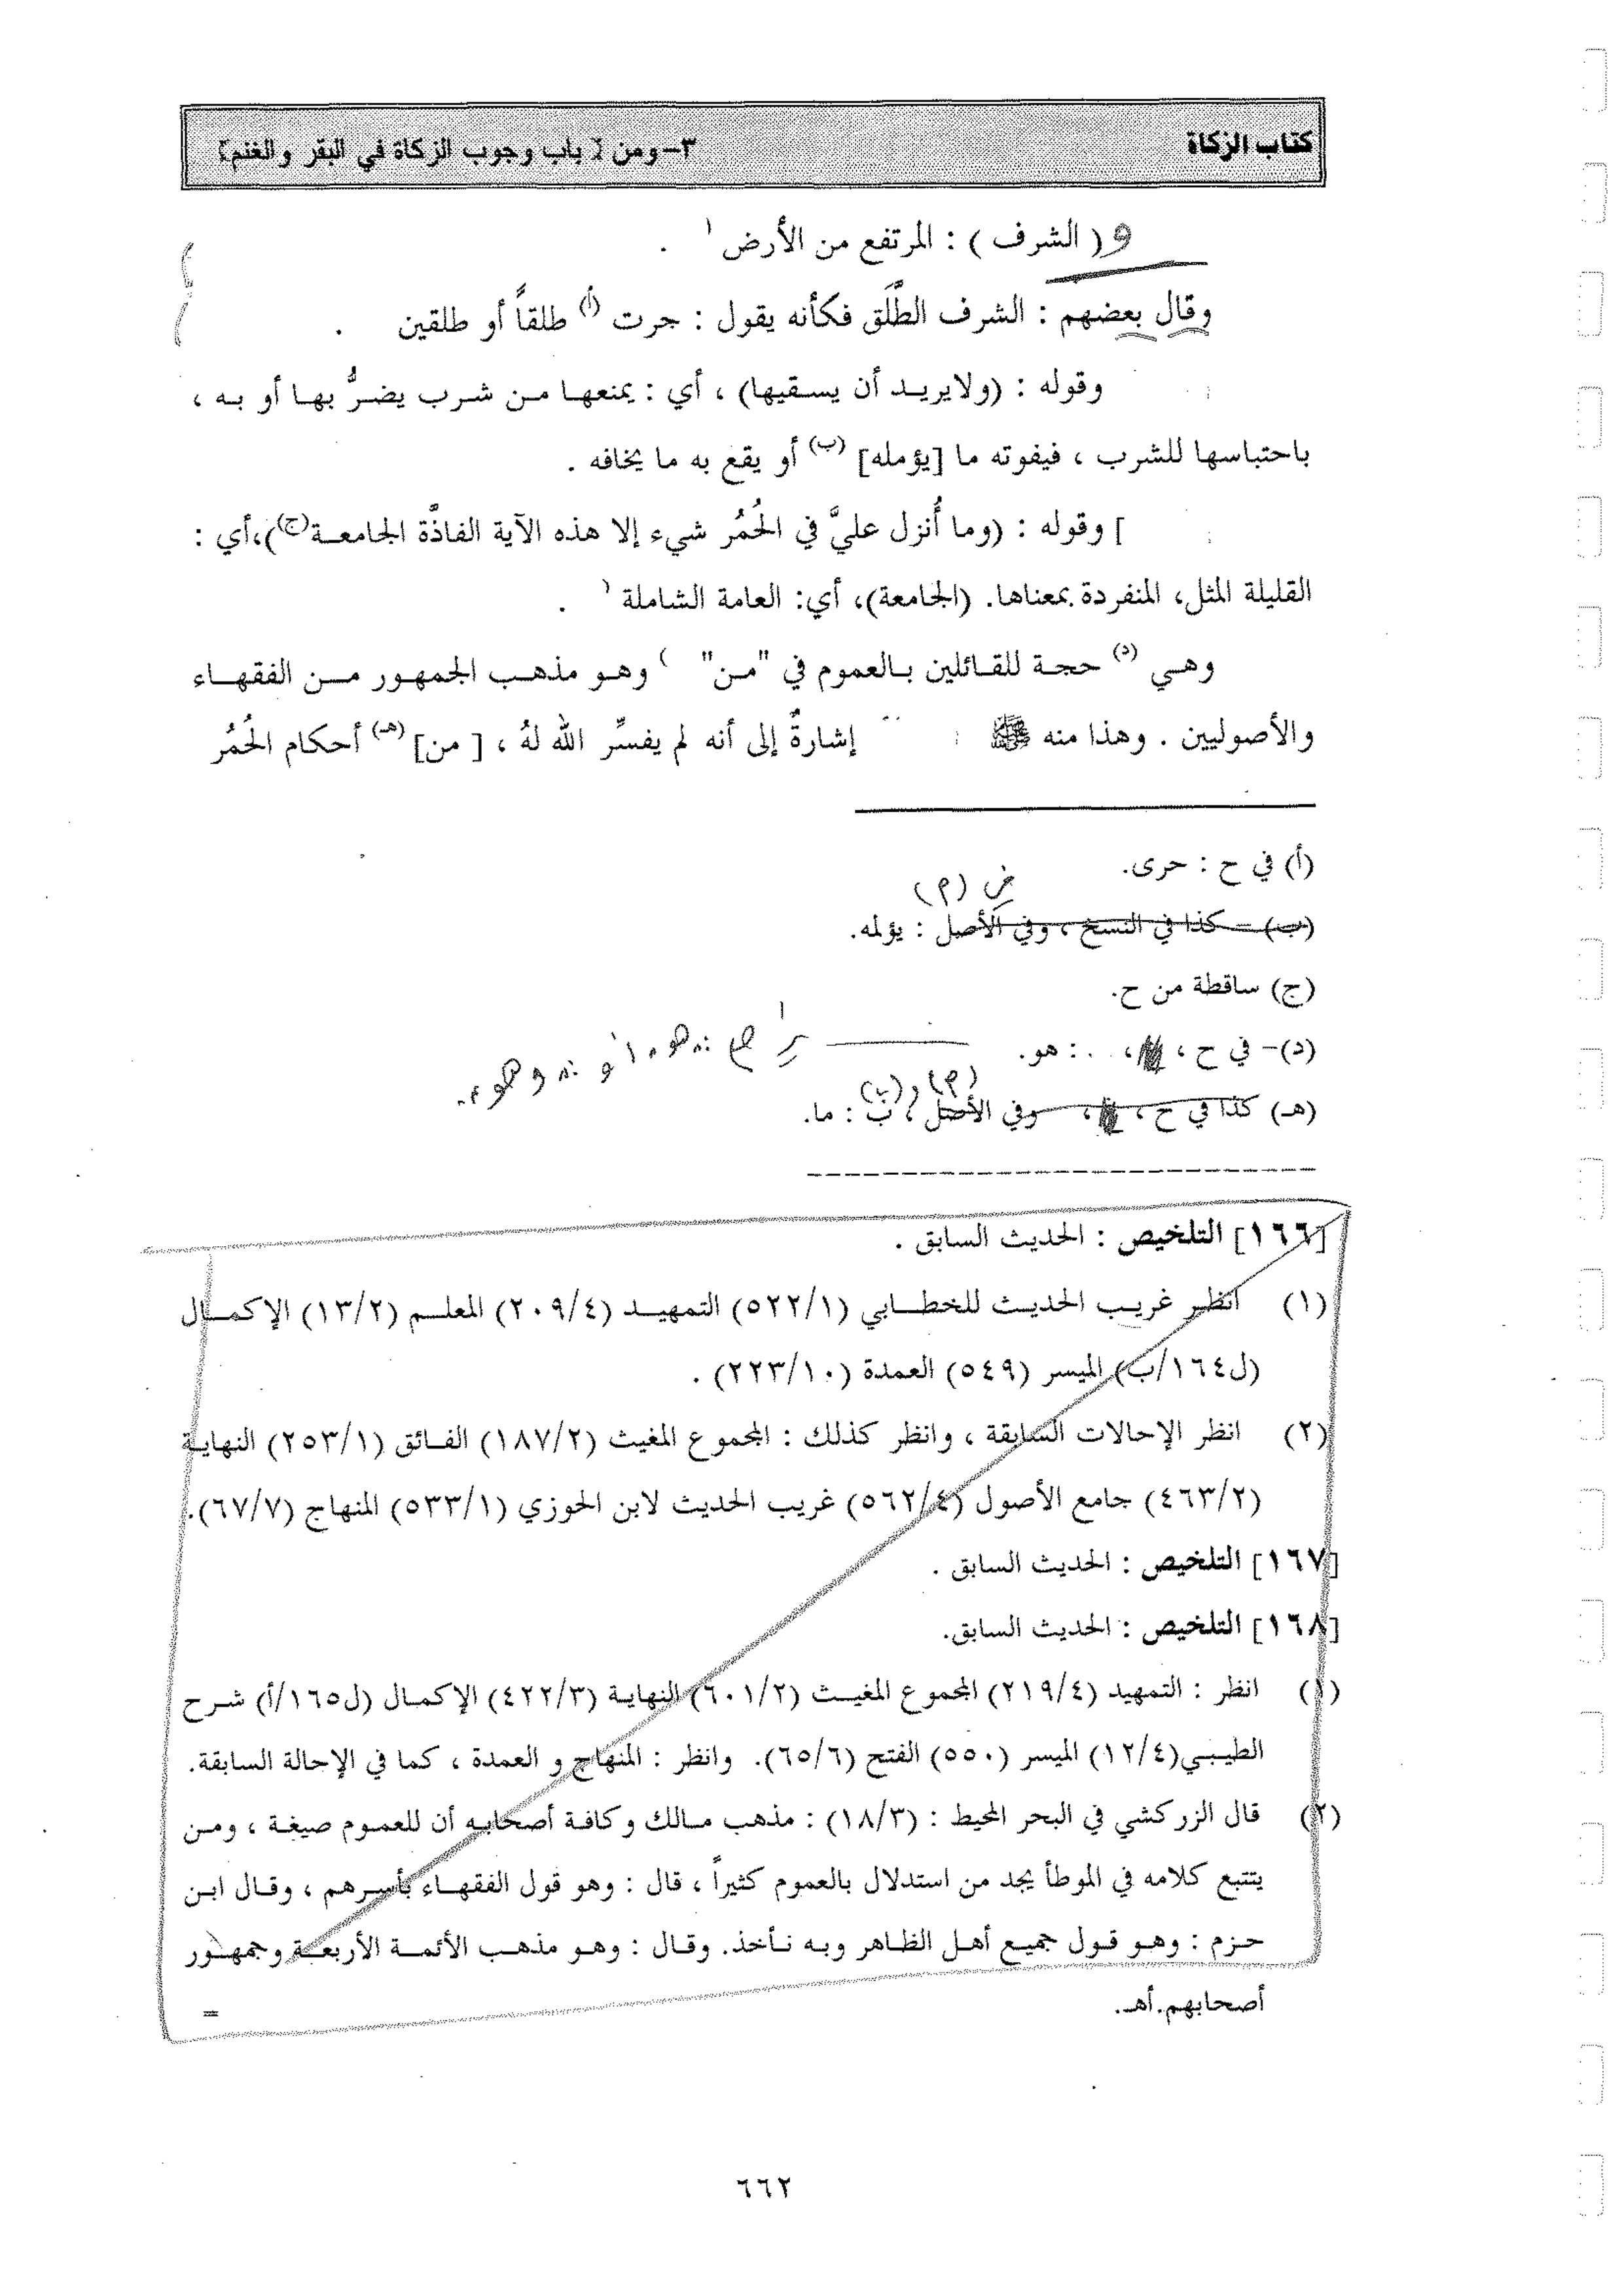 كتاب الزكاة ٣-ومن [ باب وجوب الزكاة في البقر والغنم]
و( الشرف ) : المرتفع من الأرض .
وقال بعضهم : الشرف الطَّلَق فكأنه يقول : جرت (أ) طلقاً أو طلقين .
وقوله : (ولايريد أن يسقيها) ، أي : يمنعها من شرب يضرُّ بها أو به ،
باحتباسها للشرب ، فيفوته ما [يؤمله] (ب) أو يقع به ما يخافه .
] وقوله : (وما أُنزل عليَّ في الحُمُر شيء إلا هذه الآية الفاذَّة الجامعة(ج))،أي :
القليلة المثل، المنفردة بمعناها. (الجامعة)، أي: العامة الشاملة .
وهي (د) حجة للقائلين بالعموم في "من" ) وهو مذهب الجمهور من الفقهاء
والأصوليين . وهذا منه ﷺ إشارةٌ إلى أنه لم يفسِّر الله لهُ ، [ من] (هـ) أحكام الحُمُر
(أ) في ح : حرى.
(م)
(ب) - كذا في النسخ ، وفي الأصل : يؤلمه.
(ج) ساقطة من ح.
(د)- في ح ، ، : هو.
(م) و(ب)
(هـ) كذا في ح ، ، وفي الأصل ، ب : ما.
[١٦٦] التلخيص : الحديث السابق .
(١) انظر غريب الحديث للخطابي (٥٢٢/١) التمهيد (٢٠٩/٤) المعلم (١٣/٢) الإكمال
(ل١٦٤/ب) الميسر (٥٤٩) العمدة (٢٢٣/١٠) .
(٢) انظر الإحالات السابقة ، وانظر كذلك : المجموع المغيث (١٨٧/٢) الفائق (٢٥٣/١) النهاية
(٤٦٣/٢) جامع الأصول (٥٦٢/٤) غريب الحديث لابن الجوزي (٥٣٣/١) المنهاج (٦٧/٧).
[١٦٧] التلخيص : الحديث السابق .
[١٦٨] التلخيص : الحديث السابق.
(١) انظر : التمهيد (٢١٩/٤) المجموع المغيث (٦٠١/٢) النهاية (٤٢٢/٣) الإكمال (ل١٦٥/أ) شرح
الطيبي(١٢/٤) الميسر (٥٥٠) الفتح (٦٥/٦). وانظر : المنهاج و العمدة ، كما في الإحالة السابقة.
(٢) قال الزركشي في البحر المحيط : (١٨/٣) : مذهب مالك وكافة أصحابه أن للعموم صيغة ، ومن
يتتبع كلامه في الموطأ يجد من استدلال بالعموم كثيراً ، قال : وهو قول الفقهاء بأسرهم ، وقال ابن
حزم : وهو قول جميع أهل الظاهر وبه نأخذ. وقال : وهو مذهب الأئمة الأربعة وجمهور
أصحابهم.أهـ. =
٦٦٢